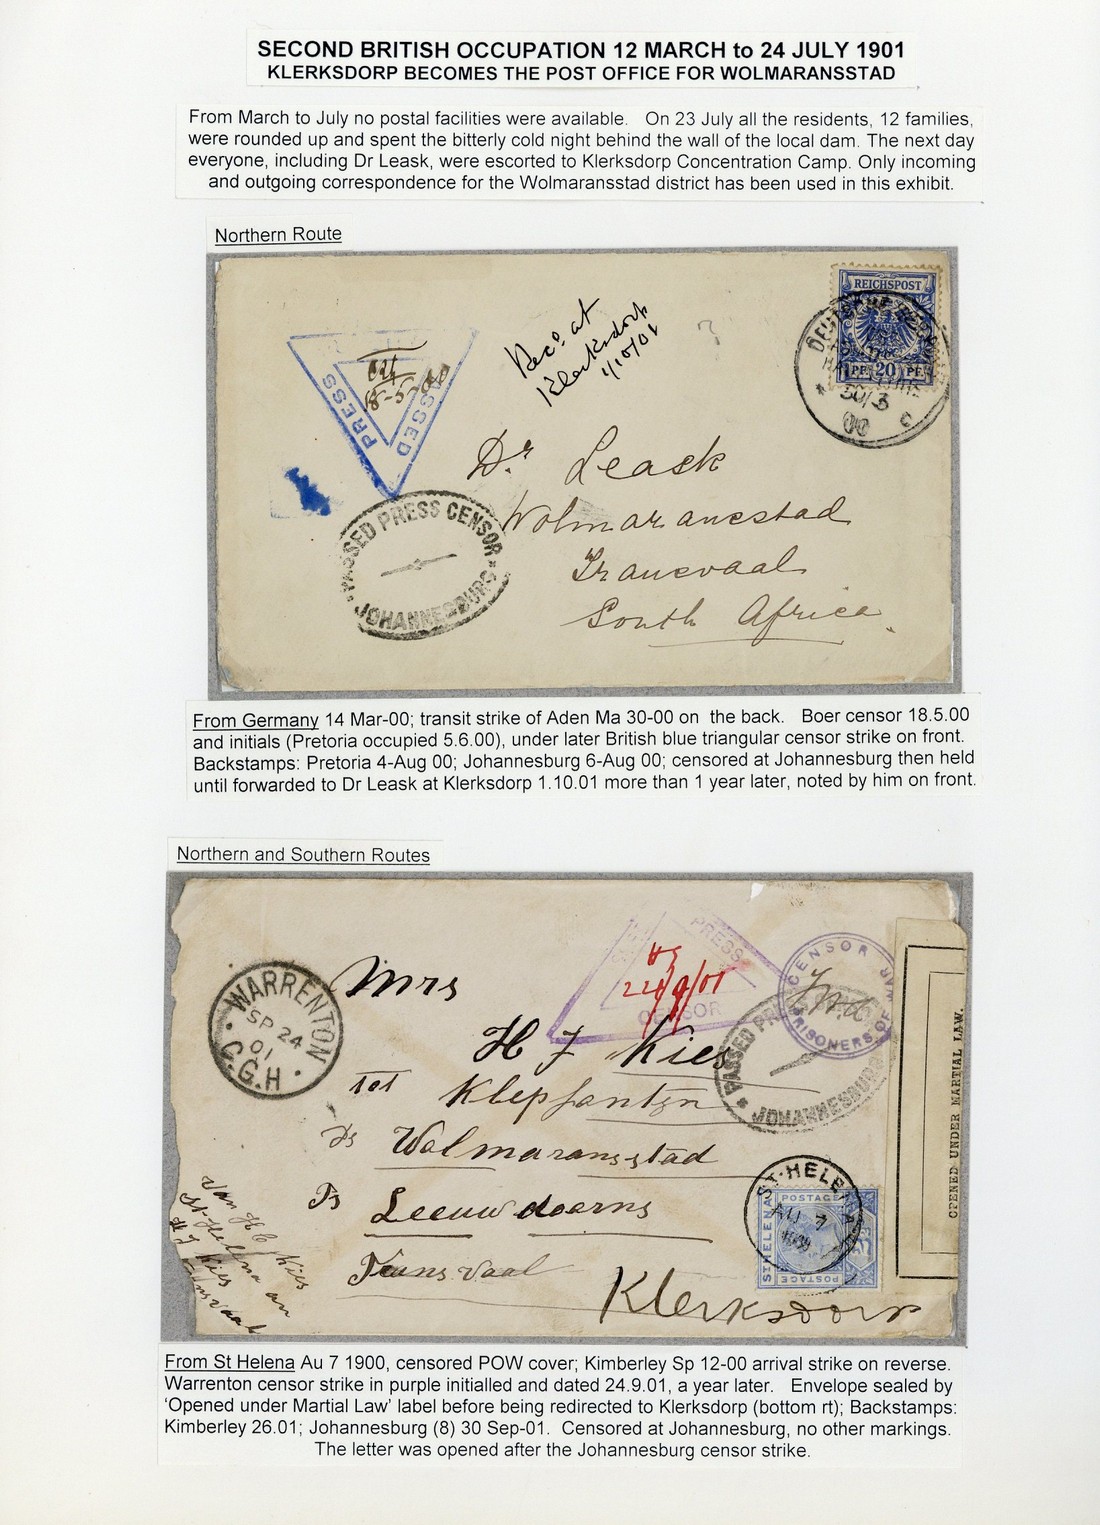 SECOND BRITISH OCCUPATION 12 MARCH to 24 JULY 1901
KLERKSDORP BECOMES THE POST OFFICE FOR WOLMARANSSTAD
From March to July no postal facilities were available. On 23 July all the residents, 12 families,
were rounded up and spent the bitterly cold night behind the wall of the local dam. The next day
everyone, including Dr Leask, were escorted to Klerksdorp Concentration Camp. Only incoming
and outgoing correspondence for the Wolmaransstad district has been used in this exhibit.
Northern Route
REICHSPOST
PF. 20 PF.
30/3
00
C
PRESS
PASSED
18-5-
Recd. at
Klerksdorp
1/10/01
Dr Leask
Wolmaransstad
Transvaal
South Africa.
PASSED PRESS CENSOR
JOHANNESBURG
From Germany 14 Mar-00; transit strike of Aden Ma 30-00 on the back. Boer censor 18.5.00
and initials (Pretoria occupied 5.6.00), under later British blue triangular censor strike on front.
Backstamps: Pretoria 4-Aug 00; Johannesburg 6-Aug 00; censored at Johannesburg then held
until forwarded to Dr Leask at Klerksdorp 1.10.01 more than 1 year later, noted by him on front.
Northern and Southern Routes
WARRENTON
SP 24
01
C.G.H
PRESS
CENSOR
CENSOR
PRISONERS OF WAR
PASSED PRESS
JOHANNESBURG
Mrs
H J Kies
tot
Klepfantyn
Ds
Wolmaransstad
Ps
Leeuwdoorns
Transvaal
Klerksdorp
Van H C Kies
St Helena an
H J Kies
Transvaal
ST. HELENA
AU 7
POSTAGE
ST HELENA
POSTAGE
OPENED UNDER MARTIAL LAW.
From St Helena Au 7 1900, censored POW cover; Kimberley Sp 12-00 arrival strike on reverse.
Warrenton censor strike in purple initialled and dated 24.9.01, a year later. Envelope sealed by
‘Opened under Martial Law’ label before being redirected to Klerksdorp (bottom rt); Backstamps:
Kimberley 26.01; Johannesburg (8) 30 Sep-01. Censored at Johannesburg, no other markings.
The letter was opened after the Johannesburg censor strike.